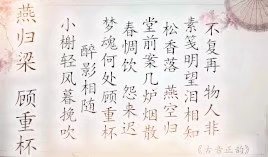 燕归梁 顾重杯
小榭轻风暮挽吹
醉影相随
梦魂何处顾重杯
春惆饮 怨来迟
堂前案几炉烟散
松香落 燕空归
素笺明望泪相知
不复再 物人非